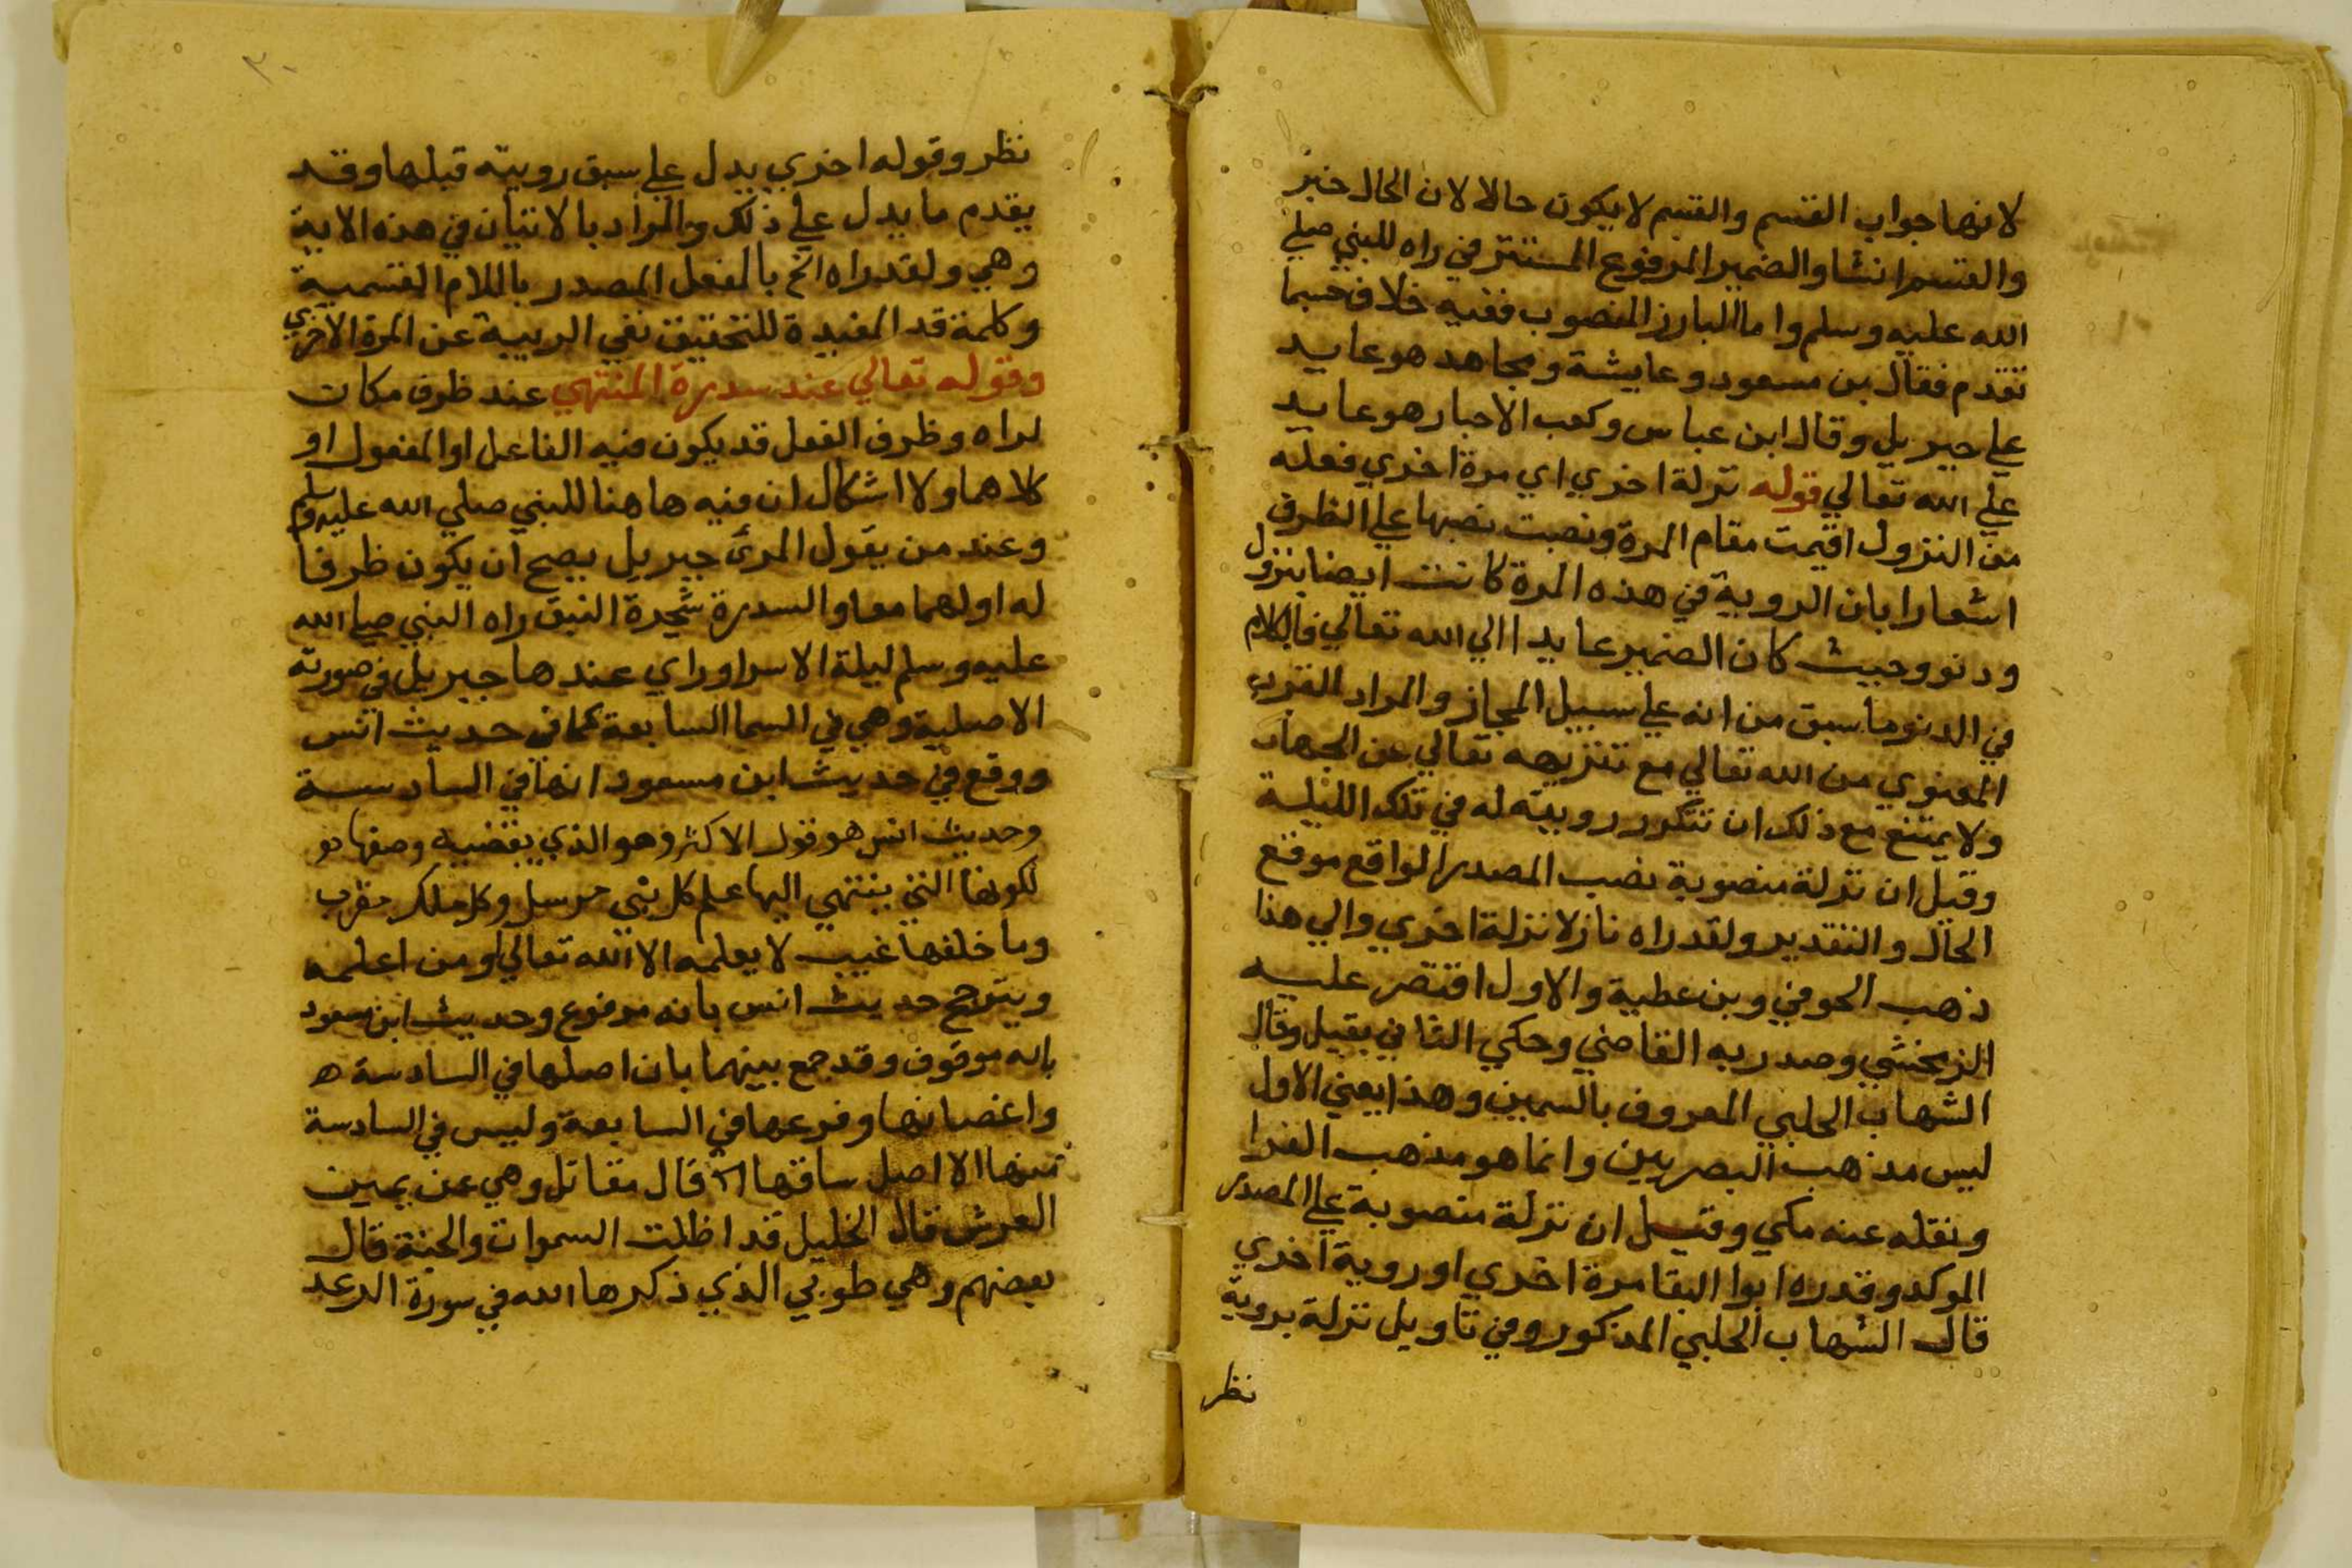 لانها جواب القسم والقسم لا يكون حالا لان الحال خبر
والقسم انشا والضمير المرفوع المستتر في راه للنبي صلي
الله عليه وسلم واما البارز المنصوب ففيه خلاف حسبما
تقدم فقال بن مسعود وعايشة ومجاهد هو عايد
علي جبريل وقال ابن عباس وكعب الاحبار هو عايد
علي الله تعالي قوله نزلة اخري اي مرة اخري فعلة
من النزول اقيمت مقام المرة ونصبت نصبها علي الظرف
اشعارا بان الروية في هذه المرة كانت ايضا بنزول
ودنو وحيث كان الضمير عايدا الي الله تعالي فالكلام
في الدنو ما سبق من انه علي سبيل المجاز والمراد القرب
المعنوي من الله تعالي مع تنزيهه تعالي عن الجهات
ولا يمتنع مع ذلك ان تتكرر رويته له في تلك الليلة
وقيل ان نزلة منصوبة نصب المصدر الواقع موقع
الحال والتقدير ولقد راه نازلا نزلة اخري والي هذا
ذهب الحوفي وبن عطية والاول اقتصر عليه
الزمخشي وصدر به القاضي وحكي الثاني بقيل وقال
الشهاب الحلبي المعروف بالسمين وهذا يعني الاول
ليس مذهب البصريين وانما هو مذهب الفرا
ونقله عنه مكي وقيل ان نزلة منصوبة علي المصدر
الموكد وقدره ابوا البقا مرة اخري او روية اخري
قال الشهاب الحلبي المذكور وفي تاويل نزلة بروية
نظر
٣٠
نظر وقوله اخري يدل علي سبق رويته قبلها وقد
يقدم ما يدل علي ذلك والمراد بالاتيان في هذه الاية
وهي ولقد راه الخ بالفعل المصدر باللام القسمية
وكلمة قد المفيدة للتحقيق نفي الريبة عن المرة الاخري
وقوله تعالي عند سدرة المنتهي عند ظرف مكان
لراه وظرف الفعل قد يكون فيه الفاعل او المفعول او
كلاهما ولا اشكال ان فيه هاهنا للنبي صلي الله عليه وسلم
وعند من يقول المرئ جبريل يصح ان يكون ظرفا
له اولهما معا والسدرة شجرة النبق راه النبي صلي الله
عليه وسلم ليلة الاسرا وراي عندها جبريل في صورته
الاصلية وهي في السما السابعة كما في حديث انس
ووقع في حديث ابن مسعود انها في السادسة
وحديث انس هو قول الاكثر وهو الذي يقتضيه وصفها
لكونها التي ينتهي اليها علم كل نبي مرسل وكل ملك مقرب
وما خلفها غيب لا يعلمه الا الله تعالي او من اعلمه
ويترجح حديث انس بانه مرفوع وحديث ابن مسعود
بانه موقوف وقد جمع بينهما بان اصلها في السادسة ه
واغصانها وفرعها في السابعة وليس في السادسة
منها الا اصل ساقها اه قال مقاتل وهي عن يمين
العرش قال الخليل قد اظلت السموات والجنة قال
بعضهم وهي طوبي الذي ذكرها الله في سورة الرعد